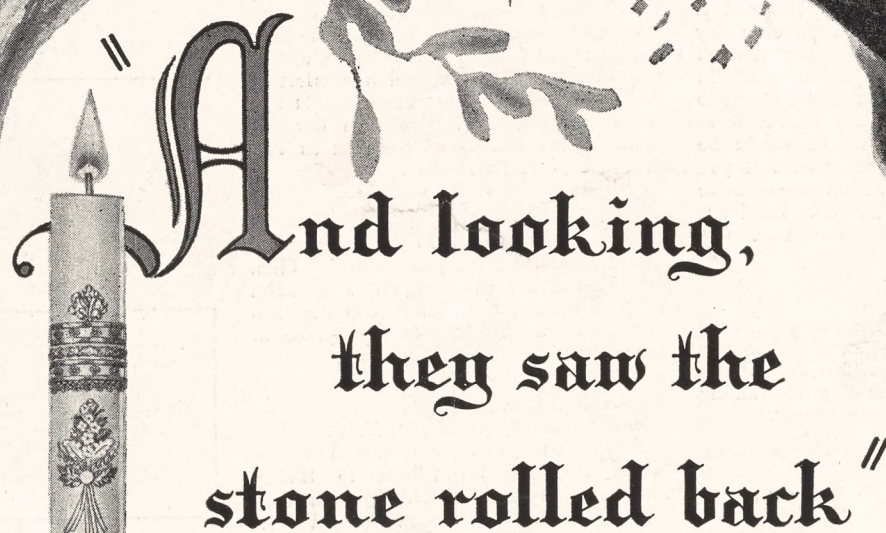 "And looking,
they saw the
stone rolled back"